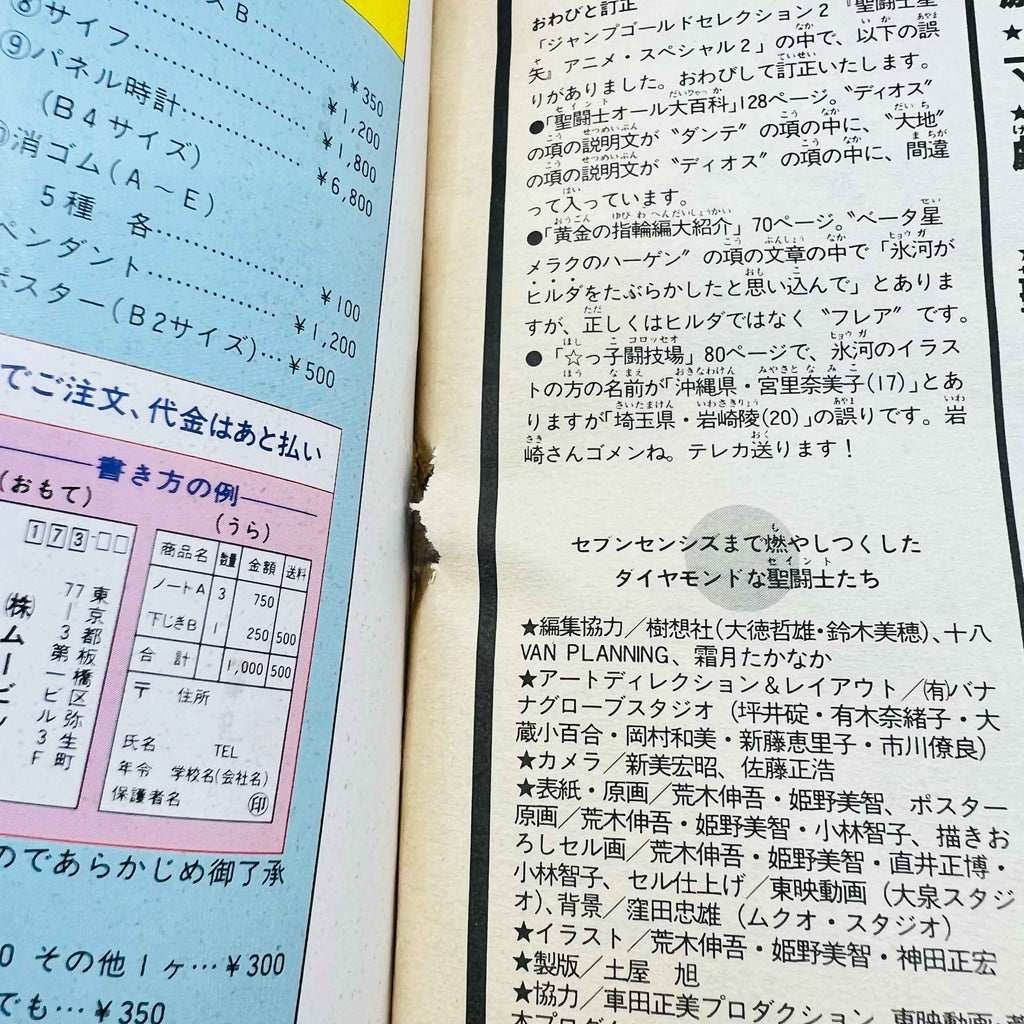 スB…
⑧サイフ………………¥350
⑨パネル時計…………¥1,200
¥1,800
(B4サイズ)
¥6,800
消ゴム(A～E)
5種 各………………¥100
ペンダント……………¥1,200
ポスター(B2サイズ)…¥500
でご注文、代金はあと払い
書き方の例
(おもて)
(うら)
173-□□
東京都板橋区弥生町
77-3第一ビル3F
㈱ムービ
商品名 数量 金額 送料
ノートA 3 750
下じきB 1 250 500
合計 1,000 500
〒 住所
氏名 TEL
年令 学校名(会社名)
保護者名 ㊞
のであらかじめ御了承
0 その他1ヶ…¥300
でも…¥350
おわびと訂正
「ジャンプゴールドセレクション2『聖闘士星
矢』アニメ・スペシャル2」の中で、以下の誤
りがありました。おわびして訂正いたします。
●「聖闘士オール大百科」128ページ。〝ディオス〟
の項の説明文が〝ダンテ〟の項の中に、〝大地〟
の項の説明文が〝ディオス〟の項の中に、間違
って入っています。
●「黄金の指輪編大紹介」70ページ。〝ベータ星
メラクのハーゲン〟の項の文章の中で「氷河が
ヒルダをたぶらかしたと思い込んで」とありま
すが、正しくはヒルダではなく〝フレア〟です。
●「☆っ子闘技場」80ページで、氷河のイラス
トの方の名前が「沖縄県・宮里奈美子(17)」とあ
りますが「埼玉県・岩崎陵(20)」の誤りです。岩
崎さんゴメンね。テレカ送ります！
セブンセンシズまで燃やしつくした
ダイヤモンドな聖闘士たち
★編集協力／樹想社(大徳哲雄・鈴木美穂)、十八
VAN PLANNING、霜月たかなか
★アートディレクション＆レイアウト／㈲バナ
ナグローブスタジオ（坪井碇・有木奈緒子・大
蔵小百合・岡村和美・新藤恵里子・市川僚良）
★カメラ／新美宏昭、佐藤正浩
★表紙・原画／荒木伸吾・姫野美智、ポスター
原画／荒木伸吾・姫野美智・小林智子、描きお
ろしセル画／荒木伸吾・姫野美智・直井正博・
小林智子、セル仕上げ／東映動画（大泉スタジ
オ）、背景／窪田忠雄（ムクオ・スタジオ）
★イラスト／荒木伸吾・姫野美智・神田正宏
★製版／土屋 旭
★協力／車田正美プロダクション、東映動画・